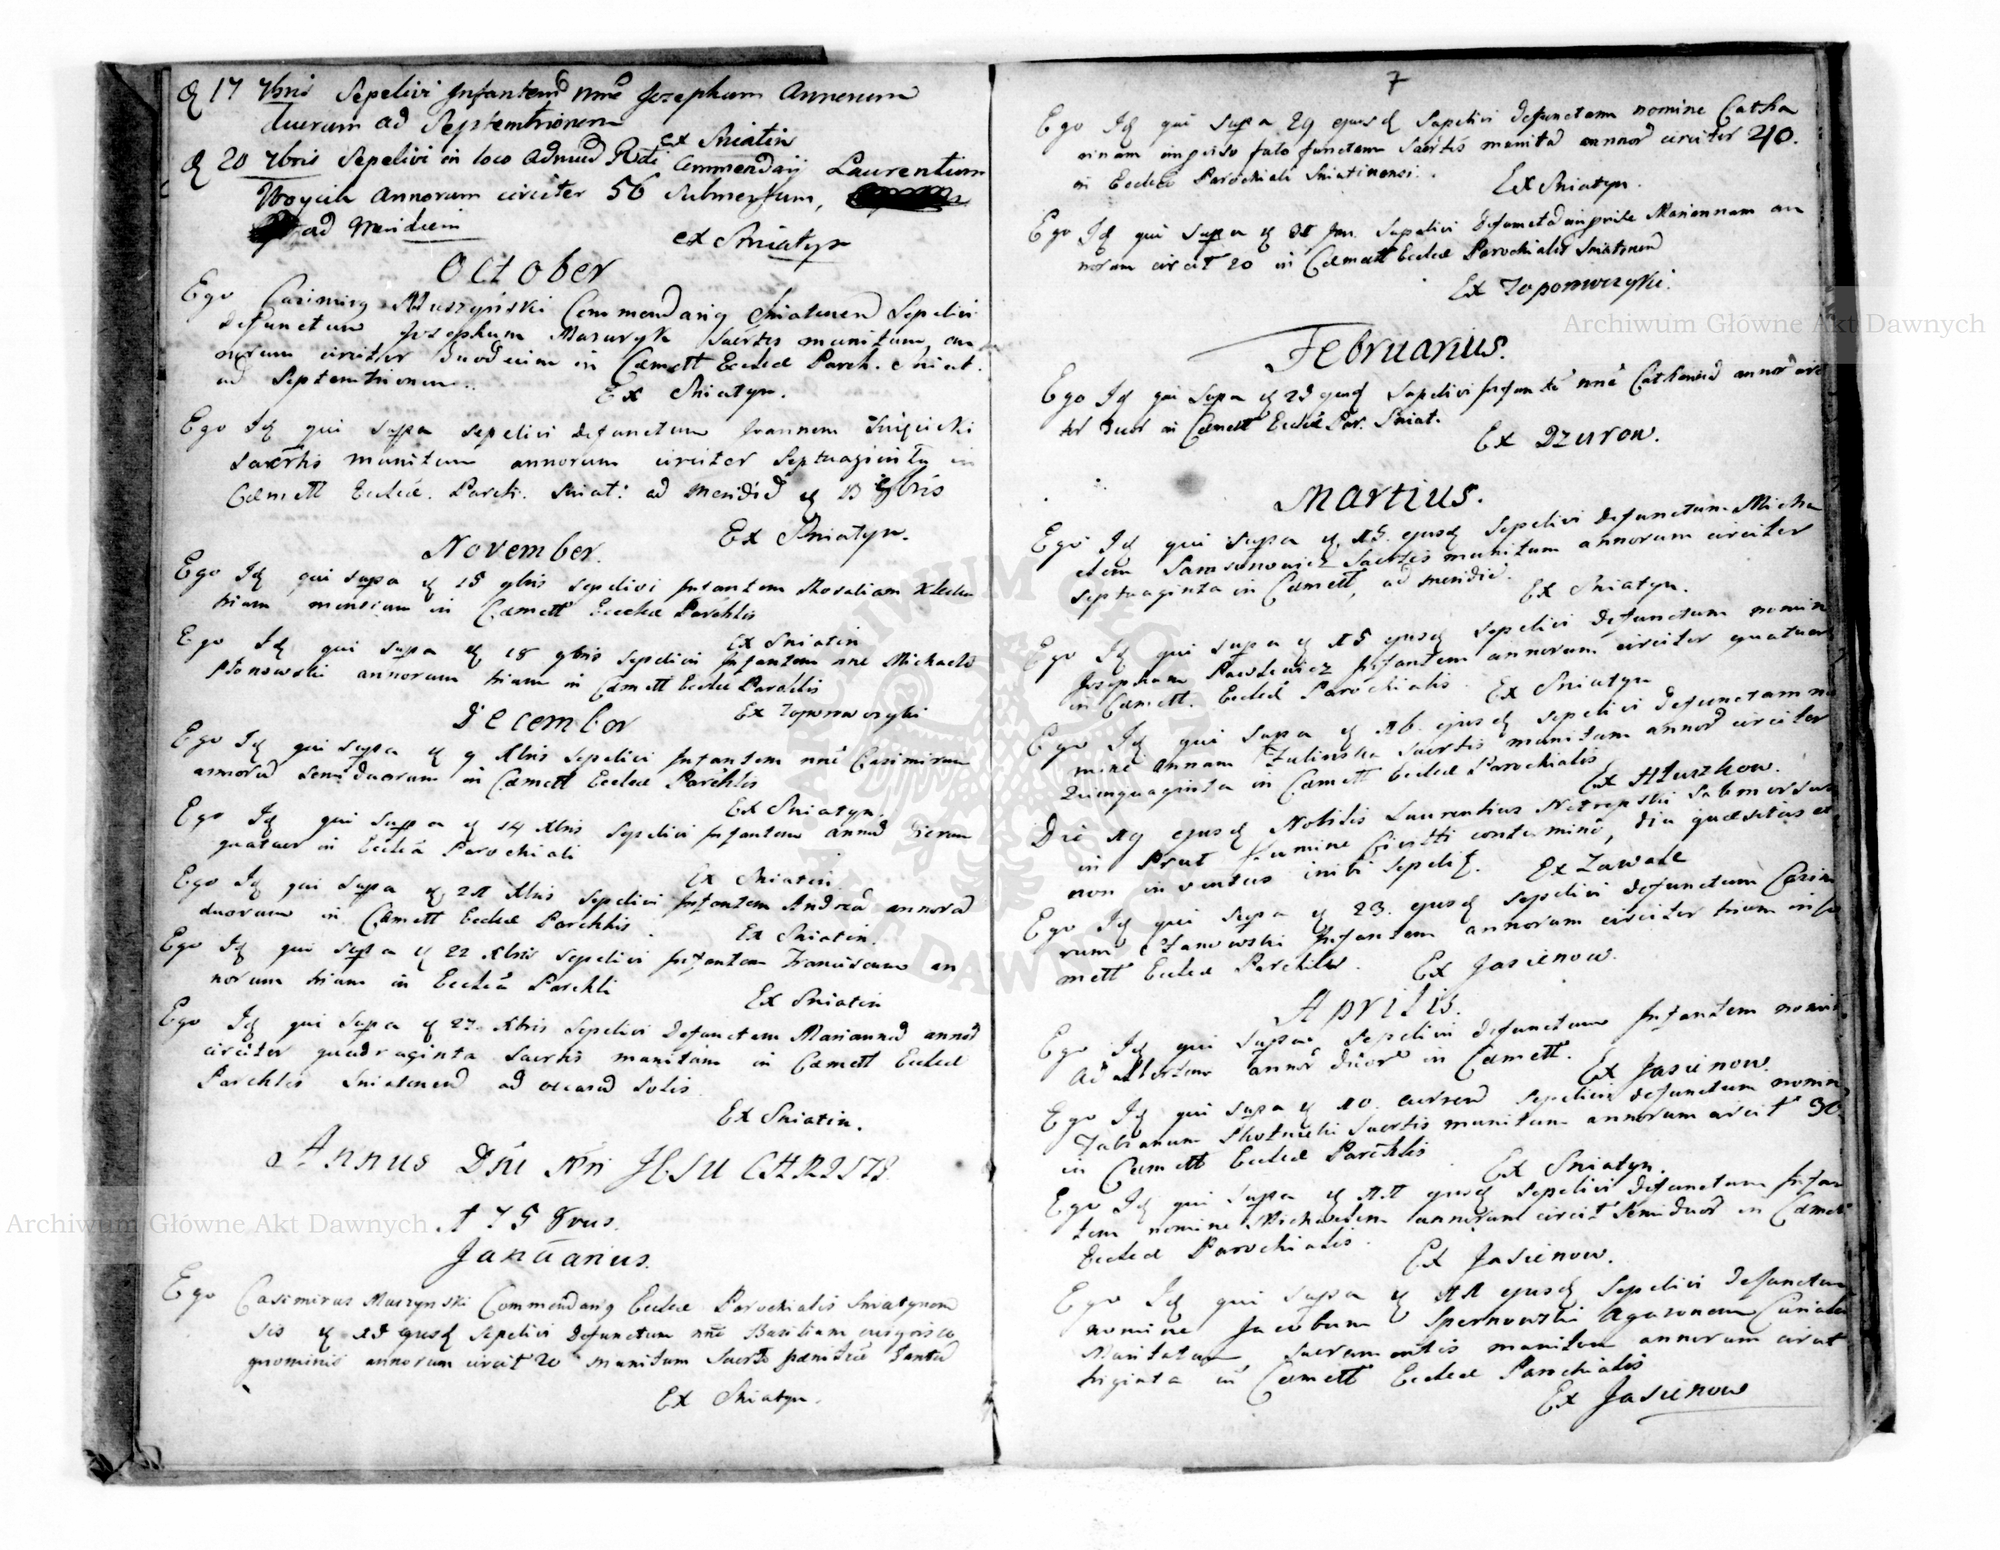 17 7bris Sepelivi Infantem nne Josephum Annorum
duorum ad Septemtrionem
ex Sniatin
20 7bris Sepelivi in loco Admod Rdi Commendarij Laurentium
Woycik Annorum circiter 56 submersum,
ad Meridiem
ex Sniatyn
October
Ego Casimirq Muszyński Commendariq Sniatinen Sepelivi
defunctum Josephum Mazuryk Sacrtis munitum an
norum circiter duodecim in Cæmett Ecclæ Paroch. Sniat.
ad Septemtrionem.
Ex Sniatyn.
Ego Id qui supra sepelivi defunctum Joannem
Sacrtis munitum annorum circiter Septuaginta in
Cæmett Ecclæ. Paroch. Sniat: ad Meridie 13 8bris
Ex Sniatyn.
November.
Ego Id qui supra 15 9bris sepelivi Infantem Rosaliam
trium mensium in Cæmett Ecclæ Parchlis
Ex Sniatin
Ego Id qui supra 18 9bris Sepelivi Infantem nne Michaele
Płonowski annorum trium in Cæmett Ecclæ Parochlis
Ex Toporowczyki
December
Ego Id qui supra 9 Xbris Sepelivi Infantem nne Casimirum
annorũ semi duorum in Cæmett Ecclæ Parchlis
Ex Sniatyn.
Ego Id qui supra 14 Xbris Sepelivi Infantem Annã dierum
quatuor in Ecclia Parochiali
Ex Sniatin
Ego Id qui supra 21 Xbris Sepelivi Infantem Andreã annorũ
duorum in Cæmett Ecclæ Parchlis.
Ex Sniatin.
Ego Id qui supra 22 Xbris Sepelivi Infantem Franciscum an
norum trium in Ecclia Parchli
Ex Sniatin
Ego Id qui supra 27. Xbris Sepelivi Defunctam Mariannã annorũ
circiter quadraginta Sacrtis munitam in Cæmett Ecclæ
Parchlis Sniatinen ad occasũ Solis
Ex Sniatin.
Annus Dni Nri JESU CHRISTI
175
Januarius.
Ego Casimirus Muszynski Commendariq Ecclæ Parochialis Sniatynen
sis ejusd Sepelivi Defunctum nne Basilium
annorum circit 20 munitum Sacrto pænitæ tantũ
Ex Sniatyn.
7
Ego Id qui supra 29 ejusd Sepelivi defunctam nomine Catha
rinam improviso fato functam Sacrtis munitã annorũ circiter 40.
in Ecclia Parochiali Sniatinensi.
Ex Sniatyn.
Ego Id qui supra 31 Jan. Sepelivi Mariannam an
norum circit 20 in Cæmett Ecclæ Parochialis Sniatinen
Ex Toporowczyki.
Februarius.
Ego Id qui supra ejusd Sepelivi nne annorũ circi
ter in Cæmett Ecclæ Par. Sniat.
Ex Dzurow.
Martius.
Ego Id qui supra 15. ejusd Sepelivi defunctum Micha
elem Samsonowicz Sacrtis munitum annorum circiter
septuaginta in Cæmett, ad meridiẽ.
Ex Sniatyn.
Ego Id qui supra 15 ejusd Sepelivi defunctum nomine
Josephum Pawlewicz Infantem annorum circiter quatuor
in Cæmett. Ecclæ Parochialis
Ex Sniatyn
Ego Id qui supra 16. ejusd Sepelivi defunctam no
mine Annam Zulinska Sacrtis munitam annorũ circiter
Quinquaginta in Cæmett Ecclæ Parochialis
Ex Hłuszkow.
Die 19 ejusd Nobilis Laurentius Netrepski Submersus
in Prut flumine Civitti contermino, diu quæsitus et
non inventus inibi sepelit.
Ex Zawale
Ego Id qui supra 23. ejusd Sepelivi defunctum Casim
rum Infantem annorum circiter trium in Cæ
mett Ecclæ Parchlis.
Ex Jasienow.
Aprilis.
Ego Id qui supra Sepelivi defunctum Infantem nomine
Adalbertum annor duorũ in Cæmett.
Ex Jasienow.
Ego Id qui supra 10. currend Sepelivi defunctum nomine
Fabianum Skotnicki Sacrtis munitum annorum circit 30
in Cæmett Ecclæ Parchlis
Ex Sniatyn.
Ego Id qui supra 11 ejusd Sepelivi defunctum Infan
tem nomine Michaelem annorum circit Semiduorũ in Cæmett
Ecclæ Parochialis.
Ex Jasienow.
Ego Id qui supra 11 ejusd Sepelivi defunctum
nomine Jacobum Spernowski Agazonem
Sacramentis munitum annorum circit
triginta in Cæmett Ecclæ Parochialis
Ex Jasienow
Archiwum Główne Akt Dawnych
Archiwum Główne Akt Dawnych
ARCHIWUM GŁÓWNE AKT DAWNYCH